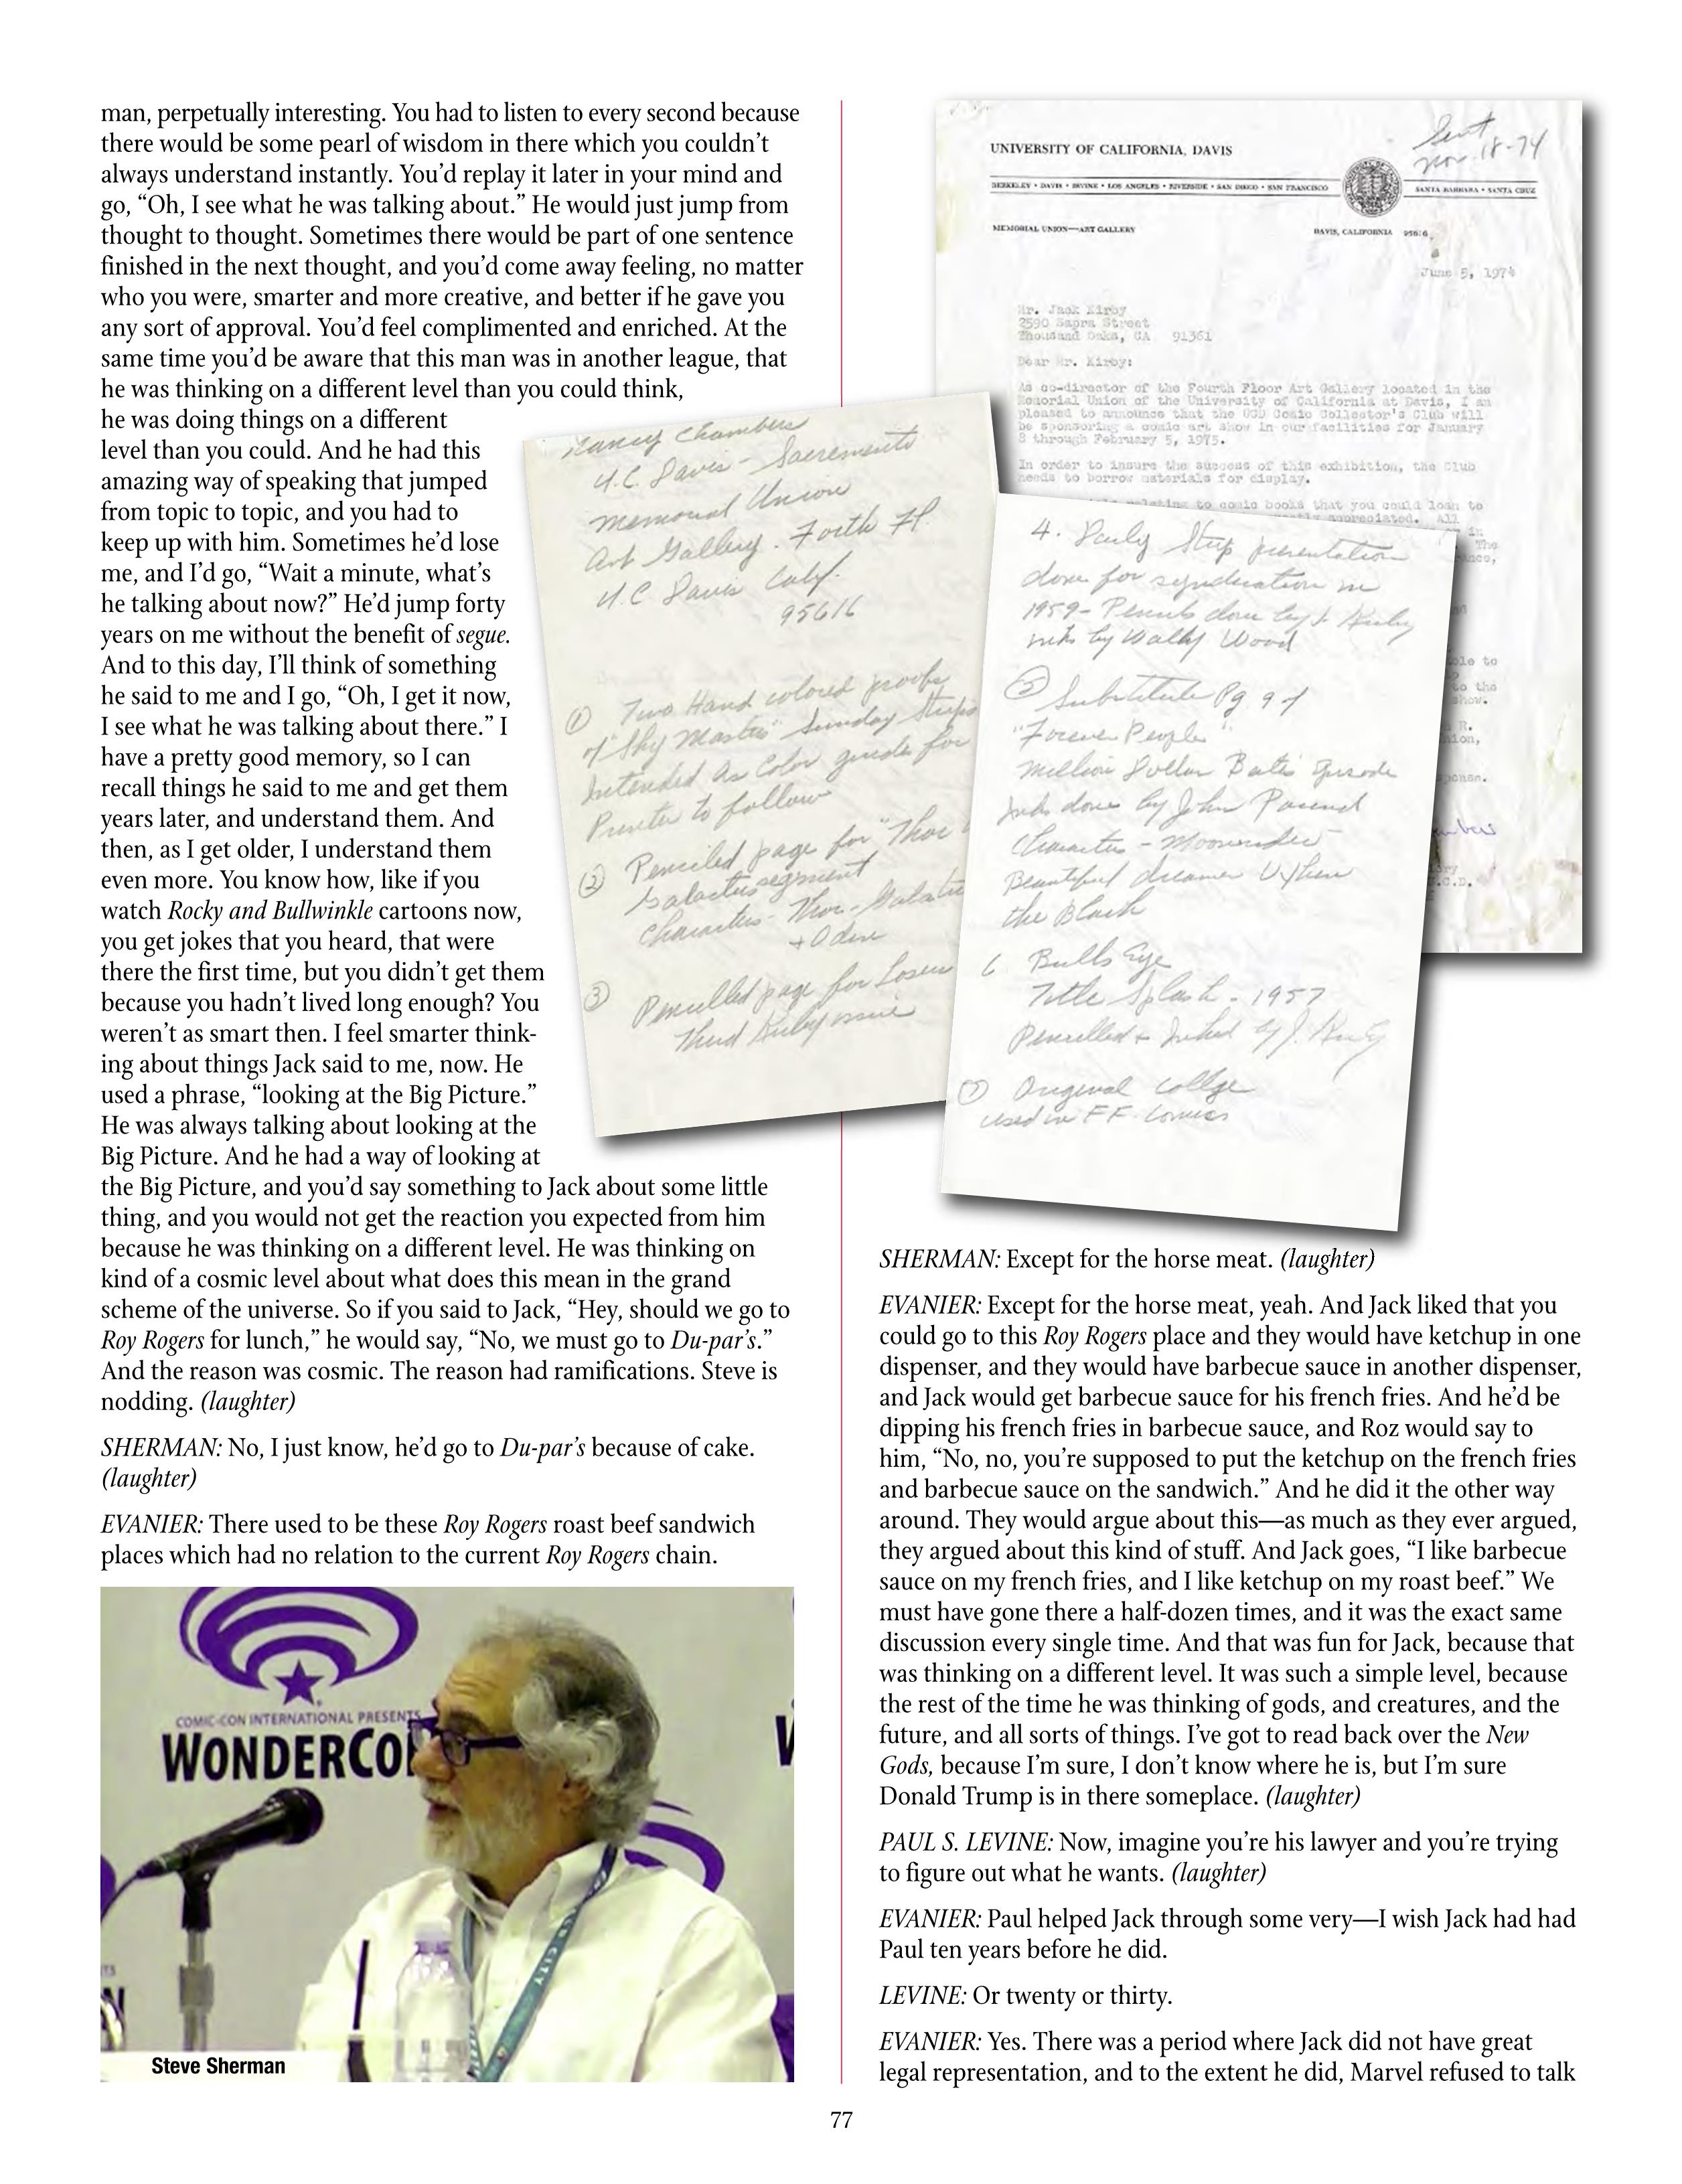 man, perpetually interesting. You had to listen to every second because
there would be some pearl of wisdom in there which you couldn’t
always understand instantly. You’d replay it later in your mind and
go, “Oh, I see what he was talking about.” He would just jump from
thought to thought. Sometimes there would be part of one sentence
finished in the next thought, and you’d come away feeling, no matter
who you were, smarter and more creative, and better if he gave you
any sort of approval. You’d feel complimented and enriched. At the
same time you’d be aware that this man was in another league, that
he was thinking on a different level than you could think,
he was doing things on a different
level than you could. And he had this
amazing way of speaking that jumped
from topic to topic, and you had to
keep up with him. Sometimes he’d lose
me, and I’d go, “Wait a minute, what’s
he talking about now?” He’d jump forty
years on me without the benefit of segue.
And to this day, I’ll think of something
he said to me and I go, “Oh, I get it now,
I see what he was talking about there.” I
have a pretty good memory, so I can
recall things he said to me and get them
years later, and understand them. And
then, as I get older, I understand them
even more. You know how, like if you
watch Rocky and Bullwinkle cartoons now,
you get jokes that you heard, that were
there the first time, but you didn’t get them
because you hadn’t lived long enough? You
weren’t as smart then. I feel smarter think-
ing about things Jack said to me, now. He
used a phrase, “looking at the Big Picture.”
He was always talking about looking at the
Big Picture. And he had a way of looking at
the Big Picture, and you’d say something to Jack about some little
thing, and you would not get the reaction you expected from him
because he was thinking on a different level. He was thinking on
kind of a cosmic level about what does this mean in the grand
scheme of the universe. So if you said to Jack, “Hey, should we go to
Roy Rogers for lunch,” he would say, “No, we must go to Du-par’s.”
And the reason was cosmic. The reason had ramifications. Steve is
nodding. (laughter)
SHERMAN: No, I just know, he’d go to Du-par’s because of cake.
(laughter)
EVANIER: There used to be these Roy Rogers roast beef sandwich
places which had no relation to the current Roy Rogers chain.
COMIC-CON INTERNATIONAL PRESENTS
WONDERCO
Steve Sherman
Nancy Chambers
U.C. Davis - Sacremento
Memorial Union
Art Gallery. Forth Fl.
U.C Davis Calif.
95616
① Two Hand colored proofs
of "Sky Masters" Sunday Strips
Intended As Color guides for
Printer to follow
② Penciled page for "Thor
Galactus segment
Characters - Thor - Galactus
+ Odin
③ Pencilled page for Losers
Third Kirby issue
4. Daily Strip presentation
done for syndication in
1959 - Pencils done by J. Kirby
inks by Wally Wood
⑤ Substitute Pg 9 of
"Forever People"
Million Dollar Bates Episode
Inks done by John
Characters - Moonrider
Beautiful dreamer
the Black
6 Bulls Eye
Title Splash - 1957
Pencilled + Inked by J. Kirby
⑦ Original collge
used in F.F. Comics
Sent
Nov. 18-74
UNIVERSITY OF CALIFORNIA, DAVIS
BERKELEY • DAVIS • IRVINE • LOS ANGELES • RIVERSIDE • SAN DIEGO • SAN FRANCISCO
SANTA BARBARA • SANTA CRUZ
MEMORIAL UNION—ART GALLERY
DAVIS, CALIFORNIA 95616
June 5, 1974
Mr. Jack Kirby
2590 Sapra Street
Thousand Oaks, CA 91361
Dear Mr. Kirby:
As co-director of the Fourth Floor Art Gallery located in the
Memorial Union of the University of California at Davis, I am
pleased to announce that the UCD Comic Collector's Club will
be sponsoring a comic art show in our facilities for January
8 through February 5, 1975.
In order to insure the success of this exhibition, the Club
needs to borrow materials for display.
relating to comic books that you could loan to
appreciated. All
SHERMAN: Except for the horse meat. (laughter)
EVANIER: Except for the horse meat, yeah. And Jack liked that you
could go to this Roy Rogers place and they would have ketchup in one
dispenser, and they would have barbecue sauce in another dispenser,
and Jack would get barbecue sauce for his french fries. And he’d be
dipping his french fries in barbecue sauce, and Roz would say to
him, “No, no, you’re supposed to put the ketchup on the french fries
and barbecue sauce on the sandwich.” And he did it the other way
around. They would argue about this—as much as they ever argued,
they argued about this kind of stuff. And Jack goes, “I like barbecue
sauce on my french fries, and I like ketchup on my roast beef.” We
must have gone there a half-dozen times, and it was the exact same
discussion every single time. And that was fun for Jack, because that
was thinking on a different level. It was such a simple level, because
the rest of the time he was thinking of gods, and creatures, and the
future, and all sorts of things. I’ve got to read back over the New
Gods, because I’m sure, I don’t know where he is, but I’m sure
Donald Trump is in there someplace. (laughter)
PAUL S. LEVINE: Now, imagine you’re his lawyer and you’re trying
to figure out what he wants. (laughter)
EVANIER: Paul helped Jack through some very—I wish Jack had had
Paul ten years before he did.
LEVINE: Or twenty or thirty.
EVANIER: Yes. There was a period where Jack did not have great
legal representation, and to the extent he did, Marvel refused to talk
77